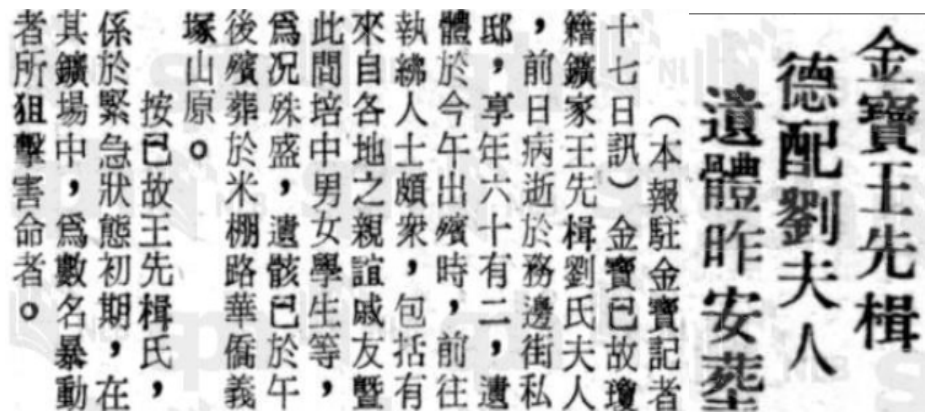 金寶王先楫
德配劉夫人
遺體昨安葬
（本報駐金寶記者
十七日訊）金寶已故瓊
籍鑛家王先楫劉氏夫人
，前日病逝於務邊街私
邸，享年六十有二，遺
體於今午出殯時，前往
執紼人士頗衆，包括有
來自各地之親誼戚友暨
此間培中男女學生等，
爲况殊盛，遺骸已於午
後殯葬於米棚路華僑義
塚山原。
按已故王先楫氏，
係於緊急狀態初期，在
其鑛場中，爲數名暴動
者所狙擊害命者。